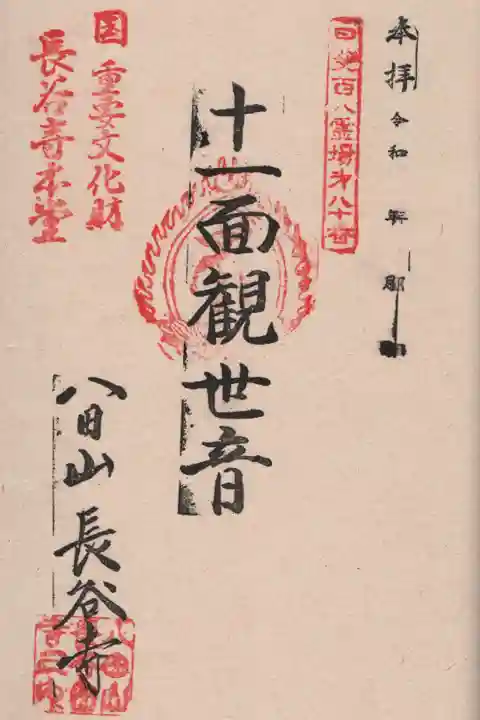 奉拝 令和
甲斐百八霊場第八十番
十一面観世音
国 重要文化財
長谷寺本堂
八田山 長谷寺